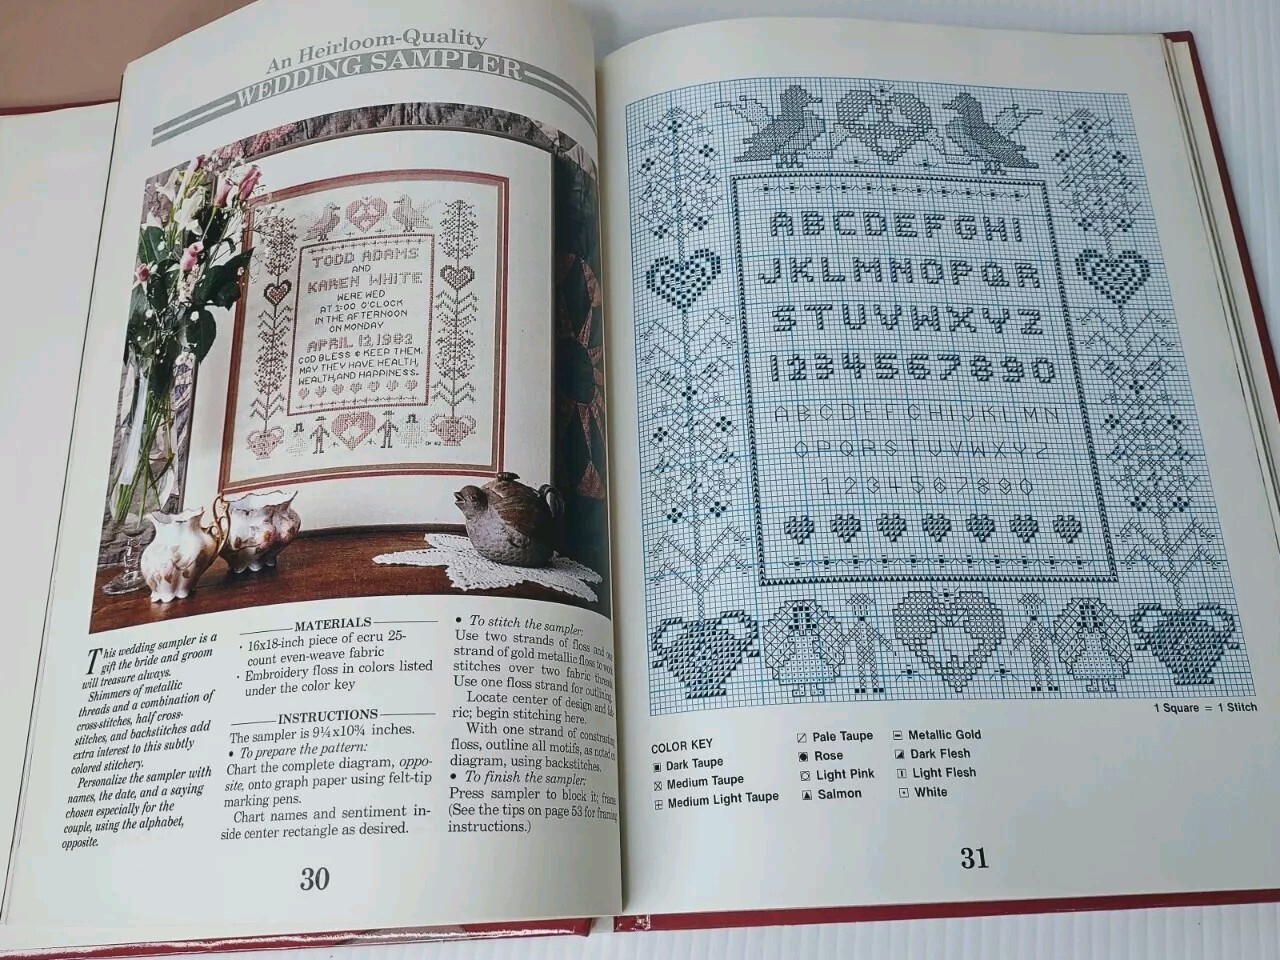 An Heirloom-Quality
WEDDING SAMPLER
TODD ADAMS
AND
KAREN WHITE
WERE WED
AT 1:00 O'CLOCK
IN THE AFTERNOON
ON MONDAY
APRIL 12, 1982
GOD BLESS & KEEP THEM.
MAY THEY HAVE HEALTH,
WEALTH, AND HAPPINESS.
This wedding sampler is a
gift the bride and groom
will treasure always.
Shimmers of metallic
threads and a combination of
cross-stitches, half cross-
stitches, and backstitches add
extra interest to this subtly
colored stitchery.
Personalize the sampler with
names, the date, and a saying
chosen especially for the
couple, using the alphabet,
opposite.
MATERIALS
· 16x18-inch piece of ecru 25-
count even-weave fabric
· Embroidery floss in colors listed
under the color key
INSTRUCTIONS
The sampler is 9¼x10¾ inches.
• To prepare the pattern:
Chart the complete diagram, oppo-
site, onto graph paper using felt-tip
marking pens.
Chart names and sentiment in-
side center rectangle as desired.
• To stitch the sampler:
Use two strands of floss and one
strand of gold metallic floss to work
stitches over two fabric threads.
Use one floss strand for outlining.
Locate center of design and fab-
ric; begin stitching here.
With one strand of contrasting
floss, outline all motifs, as noted on
diagram, using backstitches.
• To finish the sampler:
Press sampler to block it; frame
(See the tips on page 53 for framing
instructions.)
30
ABCDEFGHI
JKLMNOPQR
STUVWXYZ
1234567890
ABCDEFGHIJKLMN
OPQRSTUVWXYZ
1234567890
1 Square = 1 Stitch
COLOR KEY
Dark Taupe
Medium Taupe
Medium Light Taupe
Pale Taupe
Rose
Light Pink
Salmon
Metallic Gold
Dark Flesh
Light Flesh
White
31